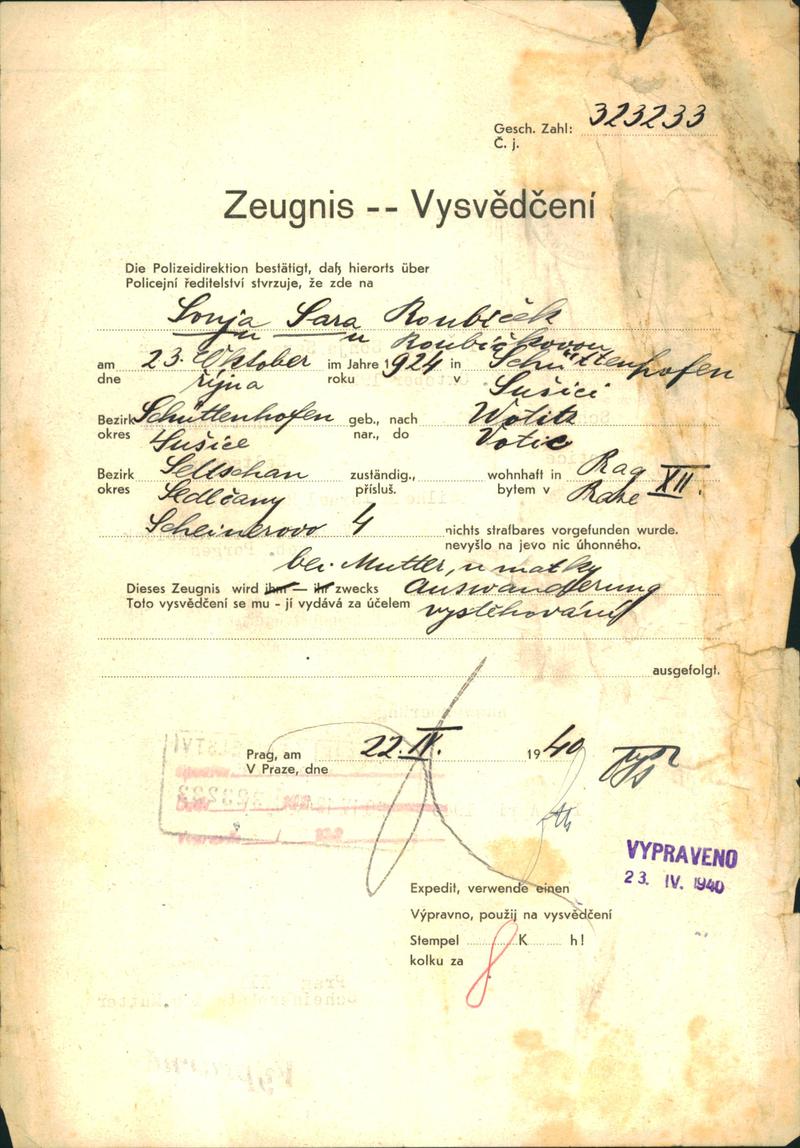 Gesch. Zahl: 323233
Č. j.
Zeugnis -- Vysvědčení
Die Polizeidirektion bestätigt, daß hierorts über
Policejní ředitelství stvrzuje, že zde na
Sonja Sara Roubíček
u u Roubíčkovou
am 23. Oktober im Jahre 1924 in Schüttenhofen
dne října roku v Sušici
Bezirk Schüttenhofen geb., nach Wotitz
okres Sušice nar., do Votic
Bezirk Seltschan zuständig., wohnhaft in Prag XII.
okres Sedlčany přísluš. bytem v Praze
Scheinerova 4 nichts strafbares vorgefunden wurde.
nevyšlo na jevo nic úhonného.
bei Mutter, u matky
Dieses Zeugnis wird ihm — ihr zwecks Auswanderung
Toto vysvědčení se mu - jí vydává za účelem vystěhování
ausgefolgt.
Prag, am 22. IV. 1940
V Praze, dne
VYPRAVENO
23. IV. 1940
Expedit, verwende einen
Výpravno, použij na vysvědčení
Stempel 8 K h!
kolku za